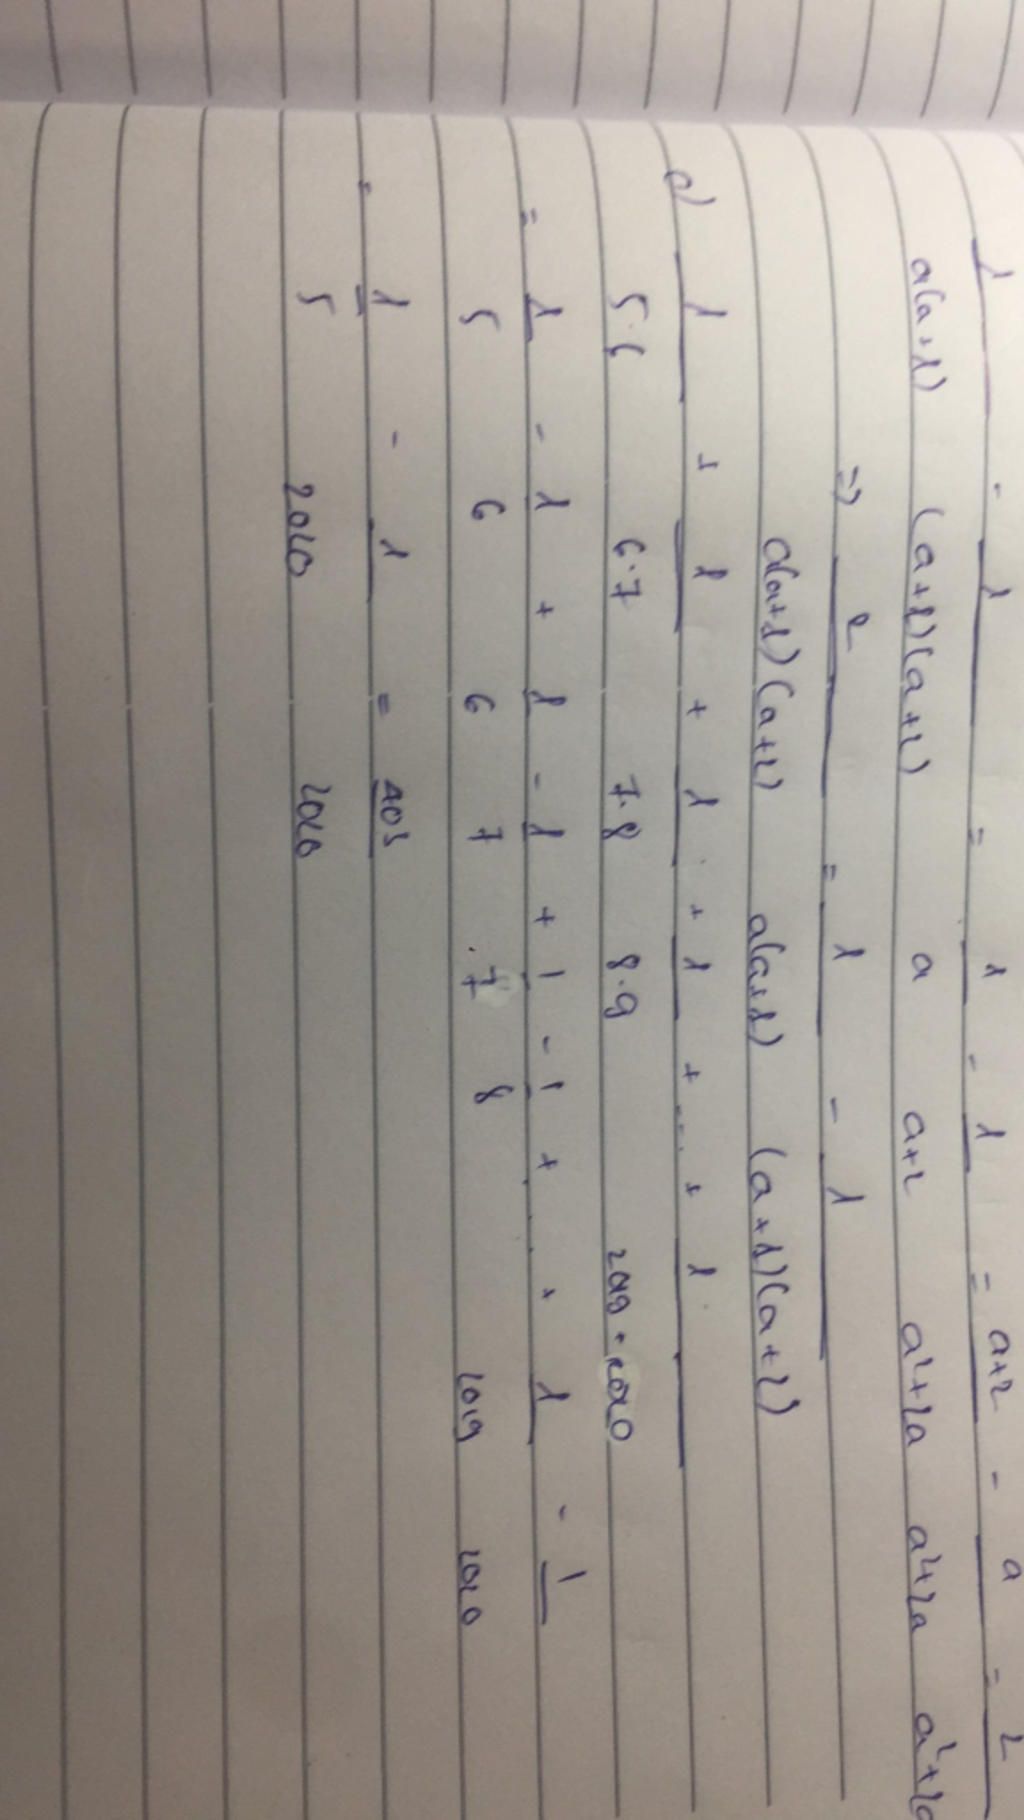 1/(a(a+1)) - 1/((a+1)(a+2)) = 1/a - 1/(a+2) = (a+2)/(a²+2a) - a/(a²+2a) = 2/(a²+2a)
=> 2/(a(a+1)(a+2)) = 1/(a(a+1)) - 1/((a+1)(a+2))
a) 1/(5·6) + 1/(6·7) + 1/(7·8) + 1/(8·9) + ... + 1/(2019·2020)
= 1/5 - 1/6 + 1/6 - 1/7 + 1/7 - 1/8 + ... + 1/2019 - 1/2020
= 1/5 - 1/2020 = 403/2020